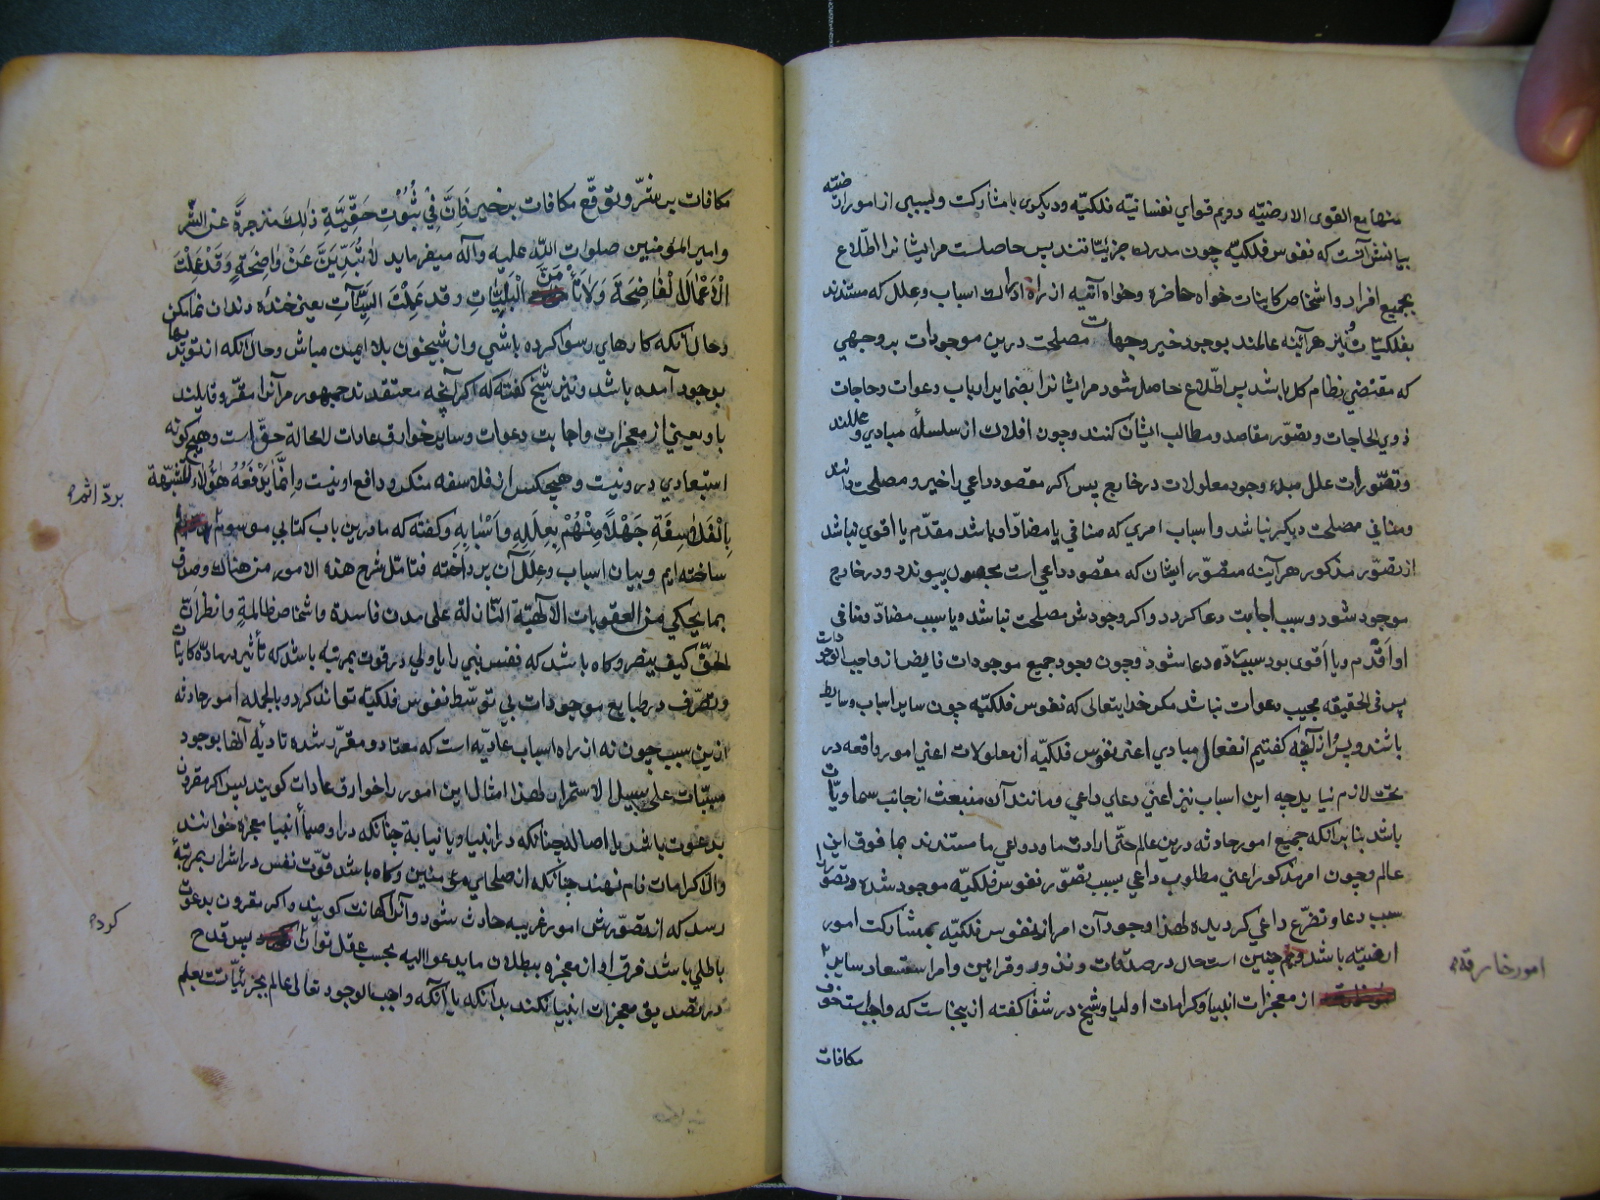 منها مع القوی الارضیّه دویم قوای نفسانیّه فلکیّه ودیکری بامشارکت وتسببی از امور ارضیّه
بیانش آنست که نفوس فلکیّه چون مدرك جزئیّاتند پس حاصلست مرایشانرا اطّلاع
بجمیع افراد واشخاص کاینات خواه حاضره وخواه آتیه از راه ادراك اسباب وعلل که مستندند
بفلکیّات ونیز هرآینه عالمند بوجود خیر وجهات مصلحت درین موجودات بدوجهی
که مقتضی نظام کل باشد پس اطّلاع حاصل شود مرایشانرا بضمایر ارباب دعوات وحاجات
ذوی الحاجات وتصوّر مقاصد ومطالب ایشان کنند وچون افلاك از سلسلهٔ مبادی وعللند
وتصوّرات علل مبدء وجود معلولات در خارج پس اکر مقصود داعی را خیر ومصلحت دانند
ومنافی مصلحت دیکر نباشد واسباب امری که منافی یا مضادّ او باشد مقدّم یا اقوی نباشد
از تصوّر مذکور هرآینه متصوّر ایشان که مقصود داعی است بحصول پیوندد ودر خارج
موجود شود وسبب اجابت دعا کردد واکر وجودش مصلحت نباشد ویا سبب مضادّ ومنافی
او اقدم ویا اقوی بود سبب ردّ دعا شود وچون وجود جمیع موجودات فایض از واجب الوجود ذات
پس فی الحقیقه مجیب دعوات نباشد مکر خدایتعالی که نفوس فلکیّه چون سایر اسباب وسایط
باشند وبرُ ازآنچه کفتیم انفعال مبادی اعنی نفوس فلکیّه از معلولات اعنی امور واقعه در
تحت لازم نیاید چه این اسباب نیز اعنی دعای داعی ومانند آن منبعث از جانب سماویّات
باشد بنابرآنکه جمیع امور حادثه درین عالم حتّی ارادت ما ودواعی ما مستندند بما فوق این
عالم وچون امر مذکور اعنی مطلوب داعی بسبب تصوّر نفوس فلکیّه موجود شده وتصوّر را
سبب دعا وتضرّع داعی کردیده لهذا وجود آن امر از نفوس فلکیّه بمشارکت امور
ارضیّه باشد وهم چنین است حال در صدقات ونذور وقرابین وامر استسعاد سایر
امور خارقه
از معجزات انبیا وکرامات اولیا وشیخ در شفا کفته ازینجاست که واجبست خوف
مکافات
مکافات بر شرّ وتوقّع مکافات بر خیر فَاِنَّ فِی ثُبُوتِ حَقِّیَّةِ ذٰلِكَ مَزجَرةً عَنِ الشَّر
وامیر المؤمنین صلوات اللّه علیه وآله میفرماید لَا تُبْدِیَنَّ عَنْ وَاضِحَةٍ وَقَدْ عَمِلْتَ
الْاَعْمَالَ الْفَاضِحَةَ وَلَا تَأْمَنِ الْبَلِیَّاتِ وقد عَمِلْتَ السَّیِّآتِ یعنی خندهٔ دندان نما مکن
وحال آنکه کارهای رسوا کرده باشی واز شبیخون بلا ایمن مباش وحال آنکه از تو بدیها
بوجود آمده باشد ونیز شیخ کفته که اکر آنچه معتقدند جمهور مرآنرا ومقرّ وقایلند
باو یعنی از معجزات واجابت دعوات وسایر خوارق عادات لامحالة حقّ است وهیچ کونه
استبعادی درو نیست وهیچکس از فلاسفه منکر ودافع او نیست وَاِنَّمَا یَدْفَعُهُ هٰؤُلَاءِ الْمُتَشَبِّهَة
بِالْفَلَاسِفَةِ جَهْلًا مِنْهُمْ بِعِلَلِهِ وَاَسْبَابِهِ وکفته که ما درین باب کتابی موسوم
ببرّ واثم
ساخته ایم وببیان اسباب وعلل آن پرداخته فتامّل شرح هذه الامور من هناك وصدّق
بما یحکی من العقوبات الالٰهیّة النّازلة علی مدن فاسدة واشخاص ظالمة وانظر انّ
الحقّ کیف ینصر وکاه باشد که نفس نبی را یا ولی در قوت بمرتبه باشد که تأثیر در مادّه کاینات
وتصرّف در طبایع موجودات بی توسّط نفوس فلکیّه تواند کرد وبالجمله امور حادثه
ازین سبب چون نه از راه اسباب عادیّه است که معتاد ومقرّر شده تادیهٔ آنها بوجود
مسبّبات علی سبیل الاستمرار لهذا امثال این امور را خوارق عادات کویند پس اکر مقرون
بدعوت باشد بالاصاله چنانکه در انبیا ویا نیابة چنانکه در اوصیاء انبیا معجزه خوانند
والّا کرامات نام نهند چنانکه از صلحای مؤمنین وکاه باشد قوّت نفس در اشرار بمرتبهٔ
رسد که از تصوّرش امور غریبه حادث شود وآنرا کهانت کویند واکر مقرون بدعوت
باطلی باشد فرق او از معجزه ببطلان ما یدعو الیه بحسب عقل توان
کرد
پس قدح
در تصدیق معجزات انبیا نکند بدانکه یا آنکه واجب الوجود تعالی عالم بجزئیّاتست بعلم